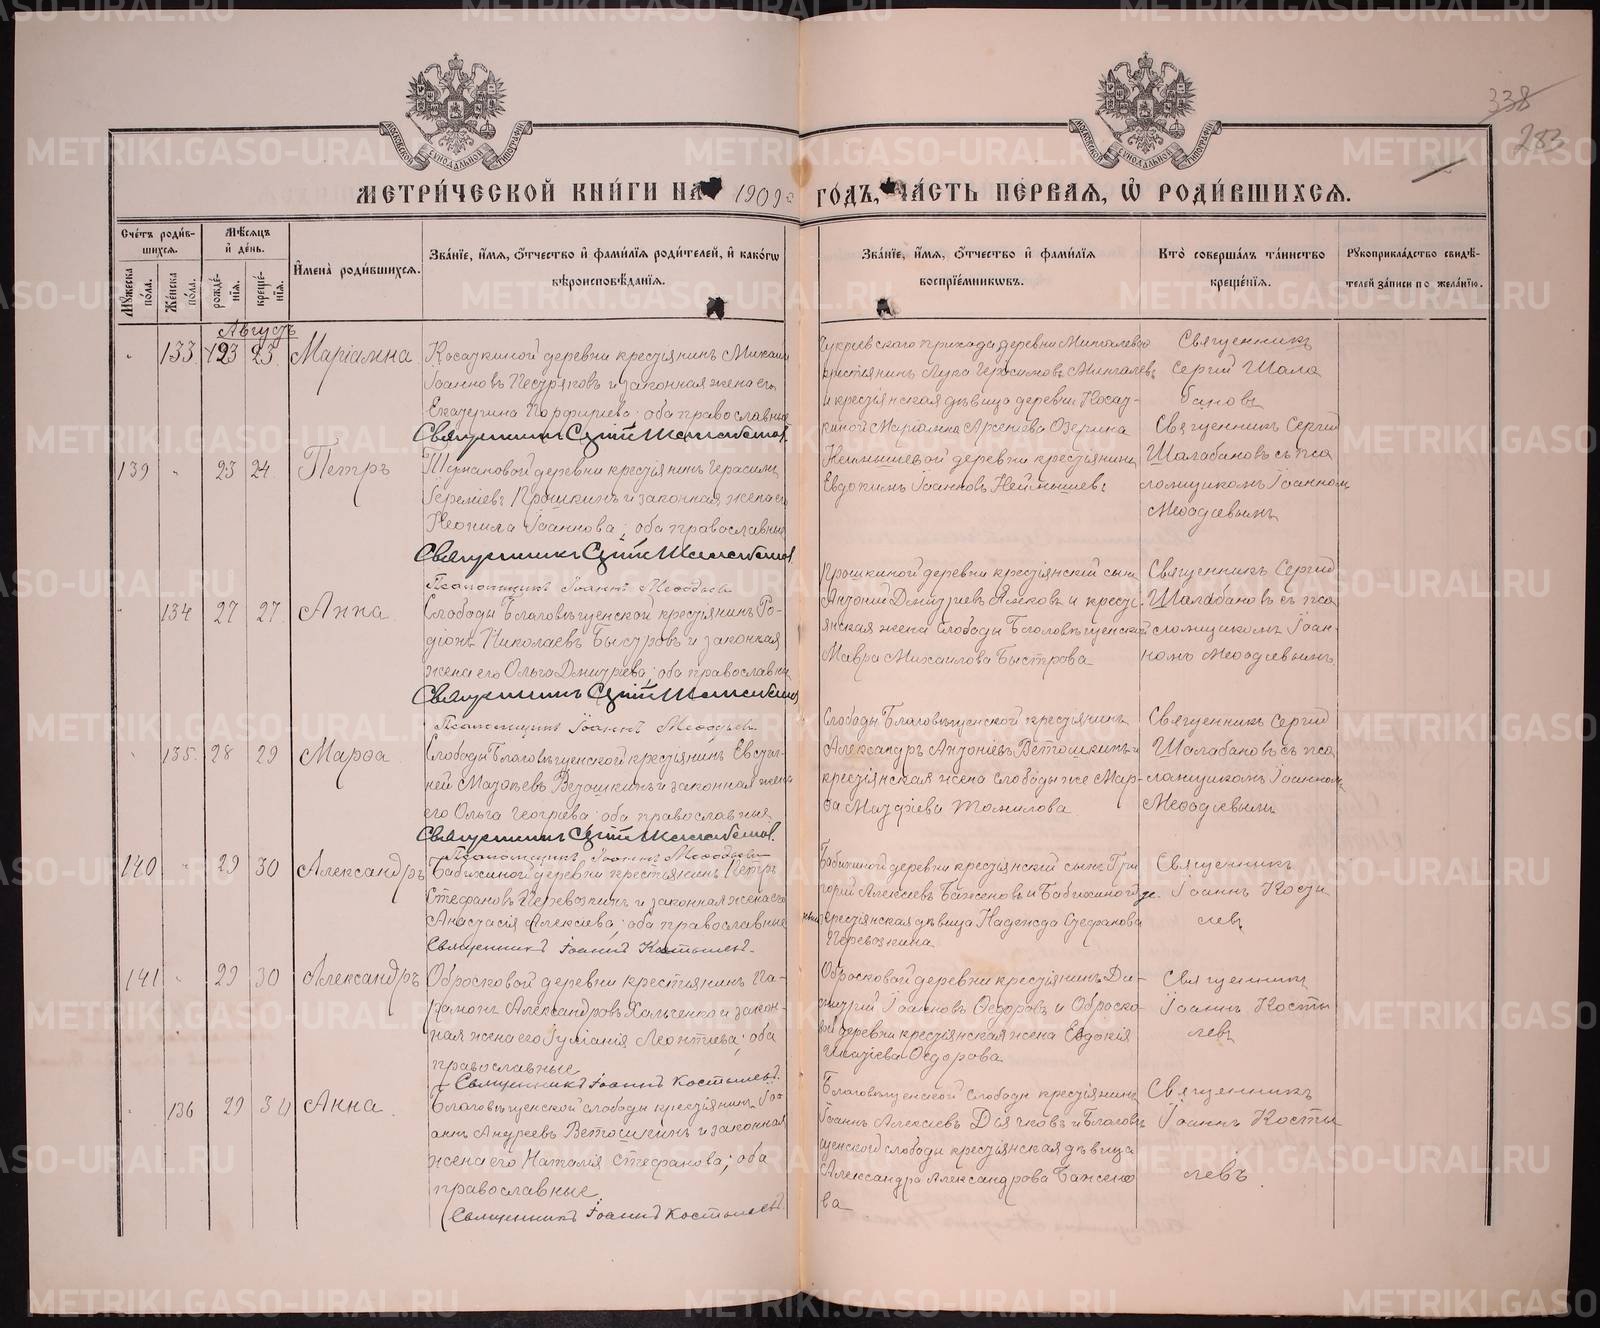 338
283
МЕТРИ́ЧЕСКОЙ КНИ́ГИ НА 1909 ГО́ДЪ, ЧА́СТЬ ПЕ́РВАЯ, Ѽ РОДИ́ВШИХСЯ.
Сче́тъ роди́вшихся.
Мꙋ́жеска по́ла.
Же́нска по́ла.
Мѣ́сяцъ и҆ де́нь.
рожде́нїя.
креще́нїя.
И҆мена̀ роди́вшихся.
Зва́нїе, и҆́мя, ѻ҆́тчество и҆ фами́лїя роди́телей, и҆ како́гѡ вѣроисповѣ́данїя.
Зва́нїе, и҆́мя, ѻ҆́тчество и҆ фами́лїя воспрїе́мникѡвъ.
Кто̀ соверша́лъ та́инство креще́нїя.
Рꙋкоприкла́дство свидѣ́телей за́писи по жела́нїю.
Августъ
133 23 23 Маріамна
Косаткиной деревни крестьянинъ Михаилъ
Іоанновъ Пестряковъ и законная жена его
Екатерина Порфириева; оба православные
Священникъ Сергій Шалабановъ.
прихода деревни
крестьянинъ Лука Герасимовъ Мингалевъ
и крестьянская дѣвица деревни Косат-
киной Маріамна Арсеніева Озерина
Священникъ
Сергій Шала
бановъ
139 23 24 Петръ
деревни крестьянинъ Герасимъ
Прошкинъ и законная жена его
Неонила Іоаннова; оба православные
Священникъ Сергій Шалабановъ
Псаломщикъ Іоаннъ Меѳодьевъ
Неймышевой деревни крестьянинъ
Евдокимъ Іоанновъ Неймышевъ
Священникъ Сергій
Шалабановъ съ пса
ломщикомъ Іоанномъ
Меѳодіевымъ
134 27 27 Анна
Слободы Благовѣщенской крестьянинъ Ро-
діонъ Николаевъ Быстровъ и законная
жена его Ольга Дмитріева; оба православные
Священникъ Сергій Шалабановъ
Псаломщикъ Іоаннъ Меѳодьевъ
Прошкиной деревни крестьянскій сынъ
Антоній Дмитріевъ и кресть-
янская жена Слободы Благовѣщенской
Мавра Михаилова Быстрова
Священникъ Сергій
Шалабановъ съ пса
ломщикомъ Іоан-
номъ Меѳодіевымъ
135 28 29 Марѳа
Слободы Благовѣщенской крестьянинъ Евстиг-
ней Матѳеевъ Ветошкинъ и законная жена
его Ольга Георгіева; оба православные
Священникъ Сергій Шалабановъ.
Псаломщикъ Іоаннъ Меѳодьевъ
Слободы Благовѣщенской крестьянинъ
Александръ Антоніевъ Ветошкинъ и
крестьянская жена Слободы же Мар-
ѳа Матѳіева Томилова
Священникъ Сергій
Шалабановъ съ пса
ломщикомъ Іоанномъ
Меѳодіевымъ
140 29 30 Александръ
Бабихиной деревни крестьянинъ Петръ
Стефановъ Перевозкинъ и законная жена его
Анастасія Алексіева; оба православные
Священникъ Іоаннъ Костылевъ.
Бабихиной деревни крестьянскій сынъ Гри
горій Алексіевъ Баженовъ и Бабихиной де-
ревни крестьянская дѣвица Надежда Стефанова
Перевозкина
Священникъ
Іоаннъ Косты
левъ
141 29 30 Александръ
Обросковой деревни крестьянинъ Па-
рамонъ Александровъ Хальченко и закон-
ная жена его Іуліанія Леонтіева; оба
православные
Священникъ Іоаннъ Костылевъ.
Обросковой деревни крестьянинъ Ди-
митрій Іоанновъ Ѳедоровъ и Оброско-
вой деревни крестьянская жена Евдокія
Игнатіева Ѳедорова
Священникъ
Іоаннъ Косты
левъ
136 29 30 Анна
Благовѣщенской слободы крестьянинъ Іо-
аннъ Андреевъ Ветошкинъ и законная
жена его Наталія Стефанова; оба
православные
Священникъ Іоаннъ Костылевъ.
Благовѣщенской Слободы крестьянинъ
Іоаннъ Алексіевъ Дьячковъ и Благовѣ
щенской слободы крестьянская дѣвица
Александра Александрова Бажено
ва
Священникъ
Іоаннъ Косты
левъ
METRIKI.GASO-URAL.RU